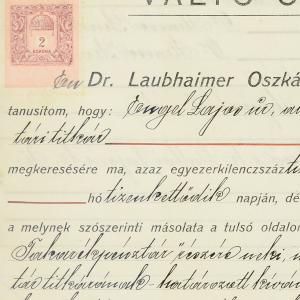 VÁLTÓ Ó
2
KORONA
Én Dr. Laubhaimer Oszká
tanusitom, hogy: Engel Lajos úr,
tári titkár
megkeresésére ma, azaz egyezerkilenczszáz
hó tizenkettődik napján, dé
a melynek szószerinti másolata a tulsó oldalon
Takarékpénztár részére neki,
tár titkárának határozott kíván